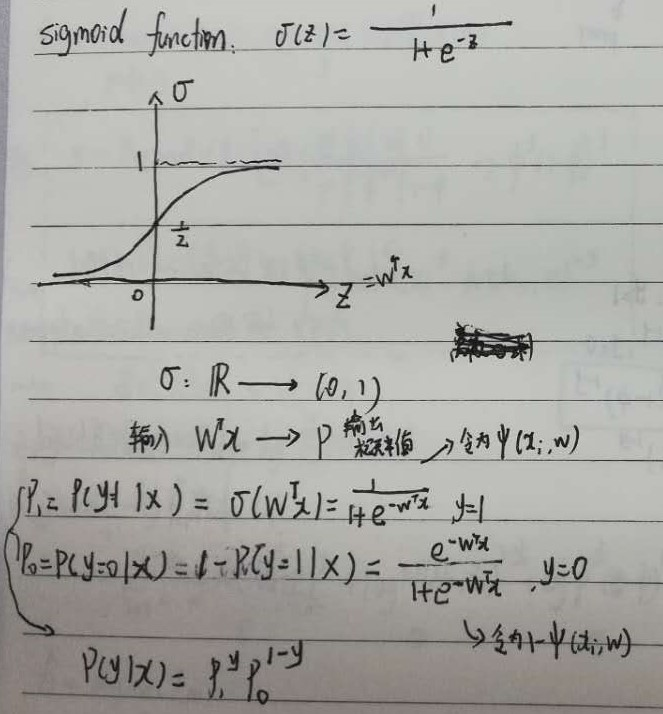 sigmoid function. σ(z) = 1 / (1 + e^{-z})
σ
1
1/2
0
z = wᵀx
σ: ℝ → (0, 1)
输入 Wᵀx → P 输出概率值 → 令为 ψ(xᵢ, w)
P₁ = P(y=1 | x) = σ(Wᵀx) = 1 / (1 + e^{-wᵀx}) y=1
P₀ = P(y=0|x) = 1 - P(y=1|x) = e^{-wᵀx} / (1 + e^{-wᵀx}), y=0
↳ 令为 1-ψ(xᵢ, w)
P(y|x) = P₁^y P₀^{1-y}